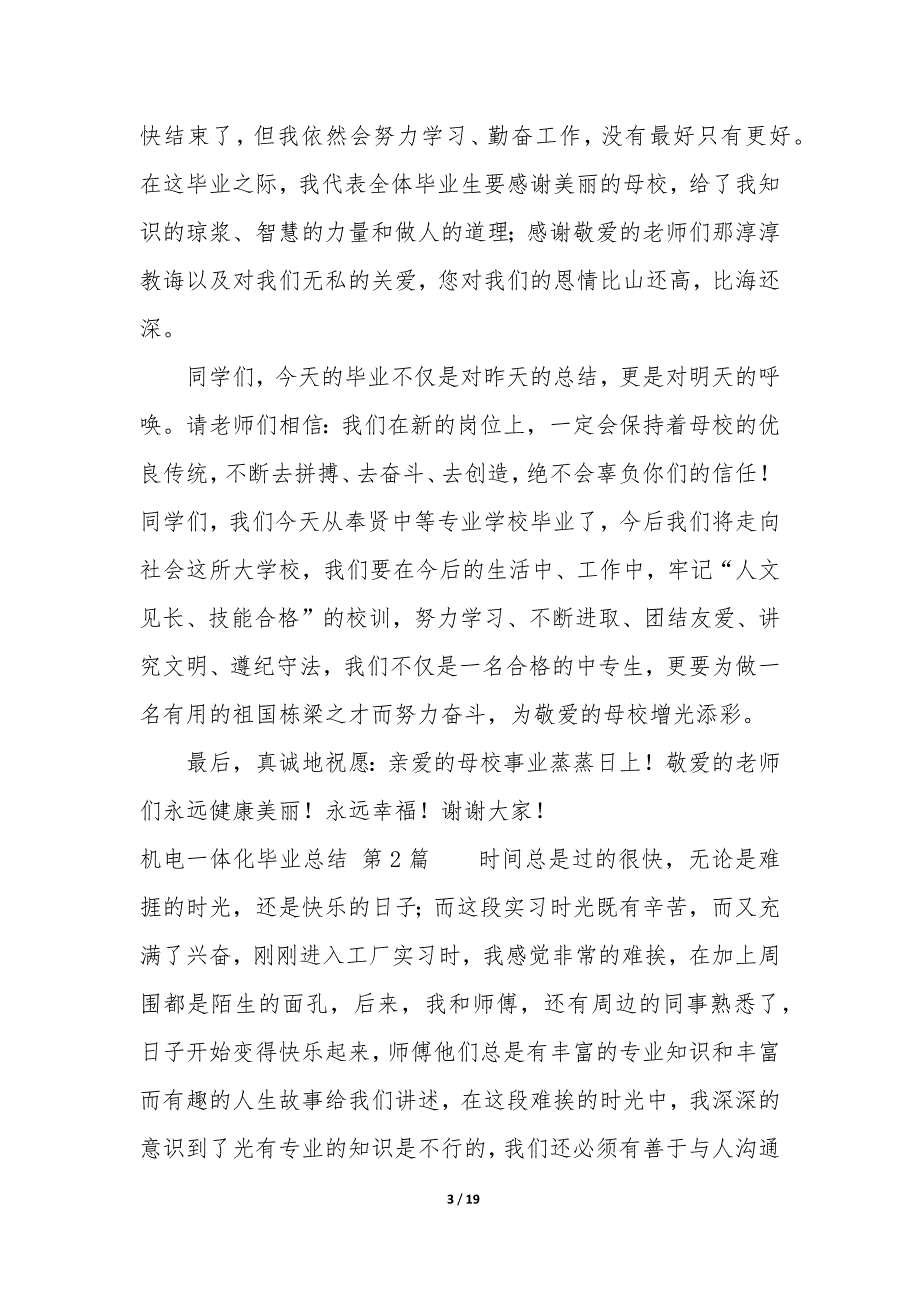 快结束了，但我依然会努力学习、勤奋工作，没有最好只有更好。
在这毕业之际，我代表全体毕业生要感谢美丽的母校，给了我知
识的琼浆、智慧的力量和做人的道理；感谢敬爱的老师们那淳淳
教诲以及对我们无私的关爱，您对我们的恩情比山还高，比海还
深。
同学们，今天的毕业不仅是对昨天的总结，更是对明天的呼
唤。请老师们相信：我们在新的岗位上，一定会保持着母校的优
良传统，不断去拼搏、去奋斗、去创造，绝不会辜负你们的信任！
同学们，我们今天从奉贤中等专业学校毕业了，今后我们将走向
社会这所大学校，我们要在今后的生活中、工作中，牢记“人文
见长、技能合格”的校训，努力学习、不断进取、团结友爱、讲
究文明、遵纪守法，我们不仅是一名合格的中专生，更要为做一
名有用的祖国栋梁之才而努力奋斗，为敬爱的母校增光添彩。
最后，真诚地祝愿：亲爱的母校事业蒸蒸日上！敬爱的老师
们永远健康美丽！永远幸福！谢谢大家！
机电一体化毕业总结 第2篇 时间总是过的很快，无论是难
捱的时光，还是快乐的日子；而这段实习时光既有辛苦，而又充
满了兴奋，刚刚进入工厂实习时，我感觉非常的难挨，在加上周
围都是陌生的面孔，后来，我和师傅，还有周边的同事熟悉了，
日子开始变得快乐起来，师傅他们总是有丰富的专业知识和丰富
而有趣的人生故事给我们讲述，在这段难挨的时光中，我深深的
意识到了光有专业的知识是不行的，我们还必须有善于与人沟通
3 / 19